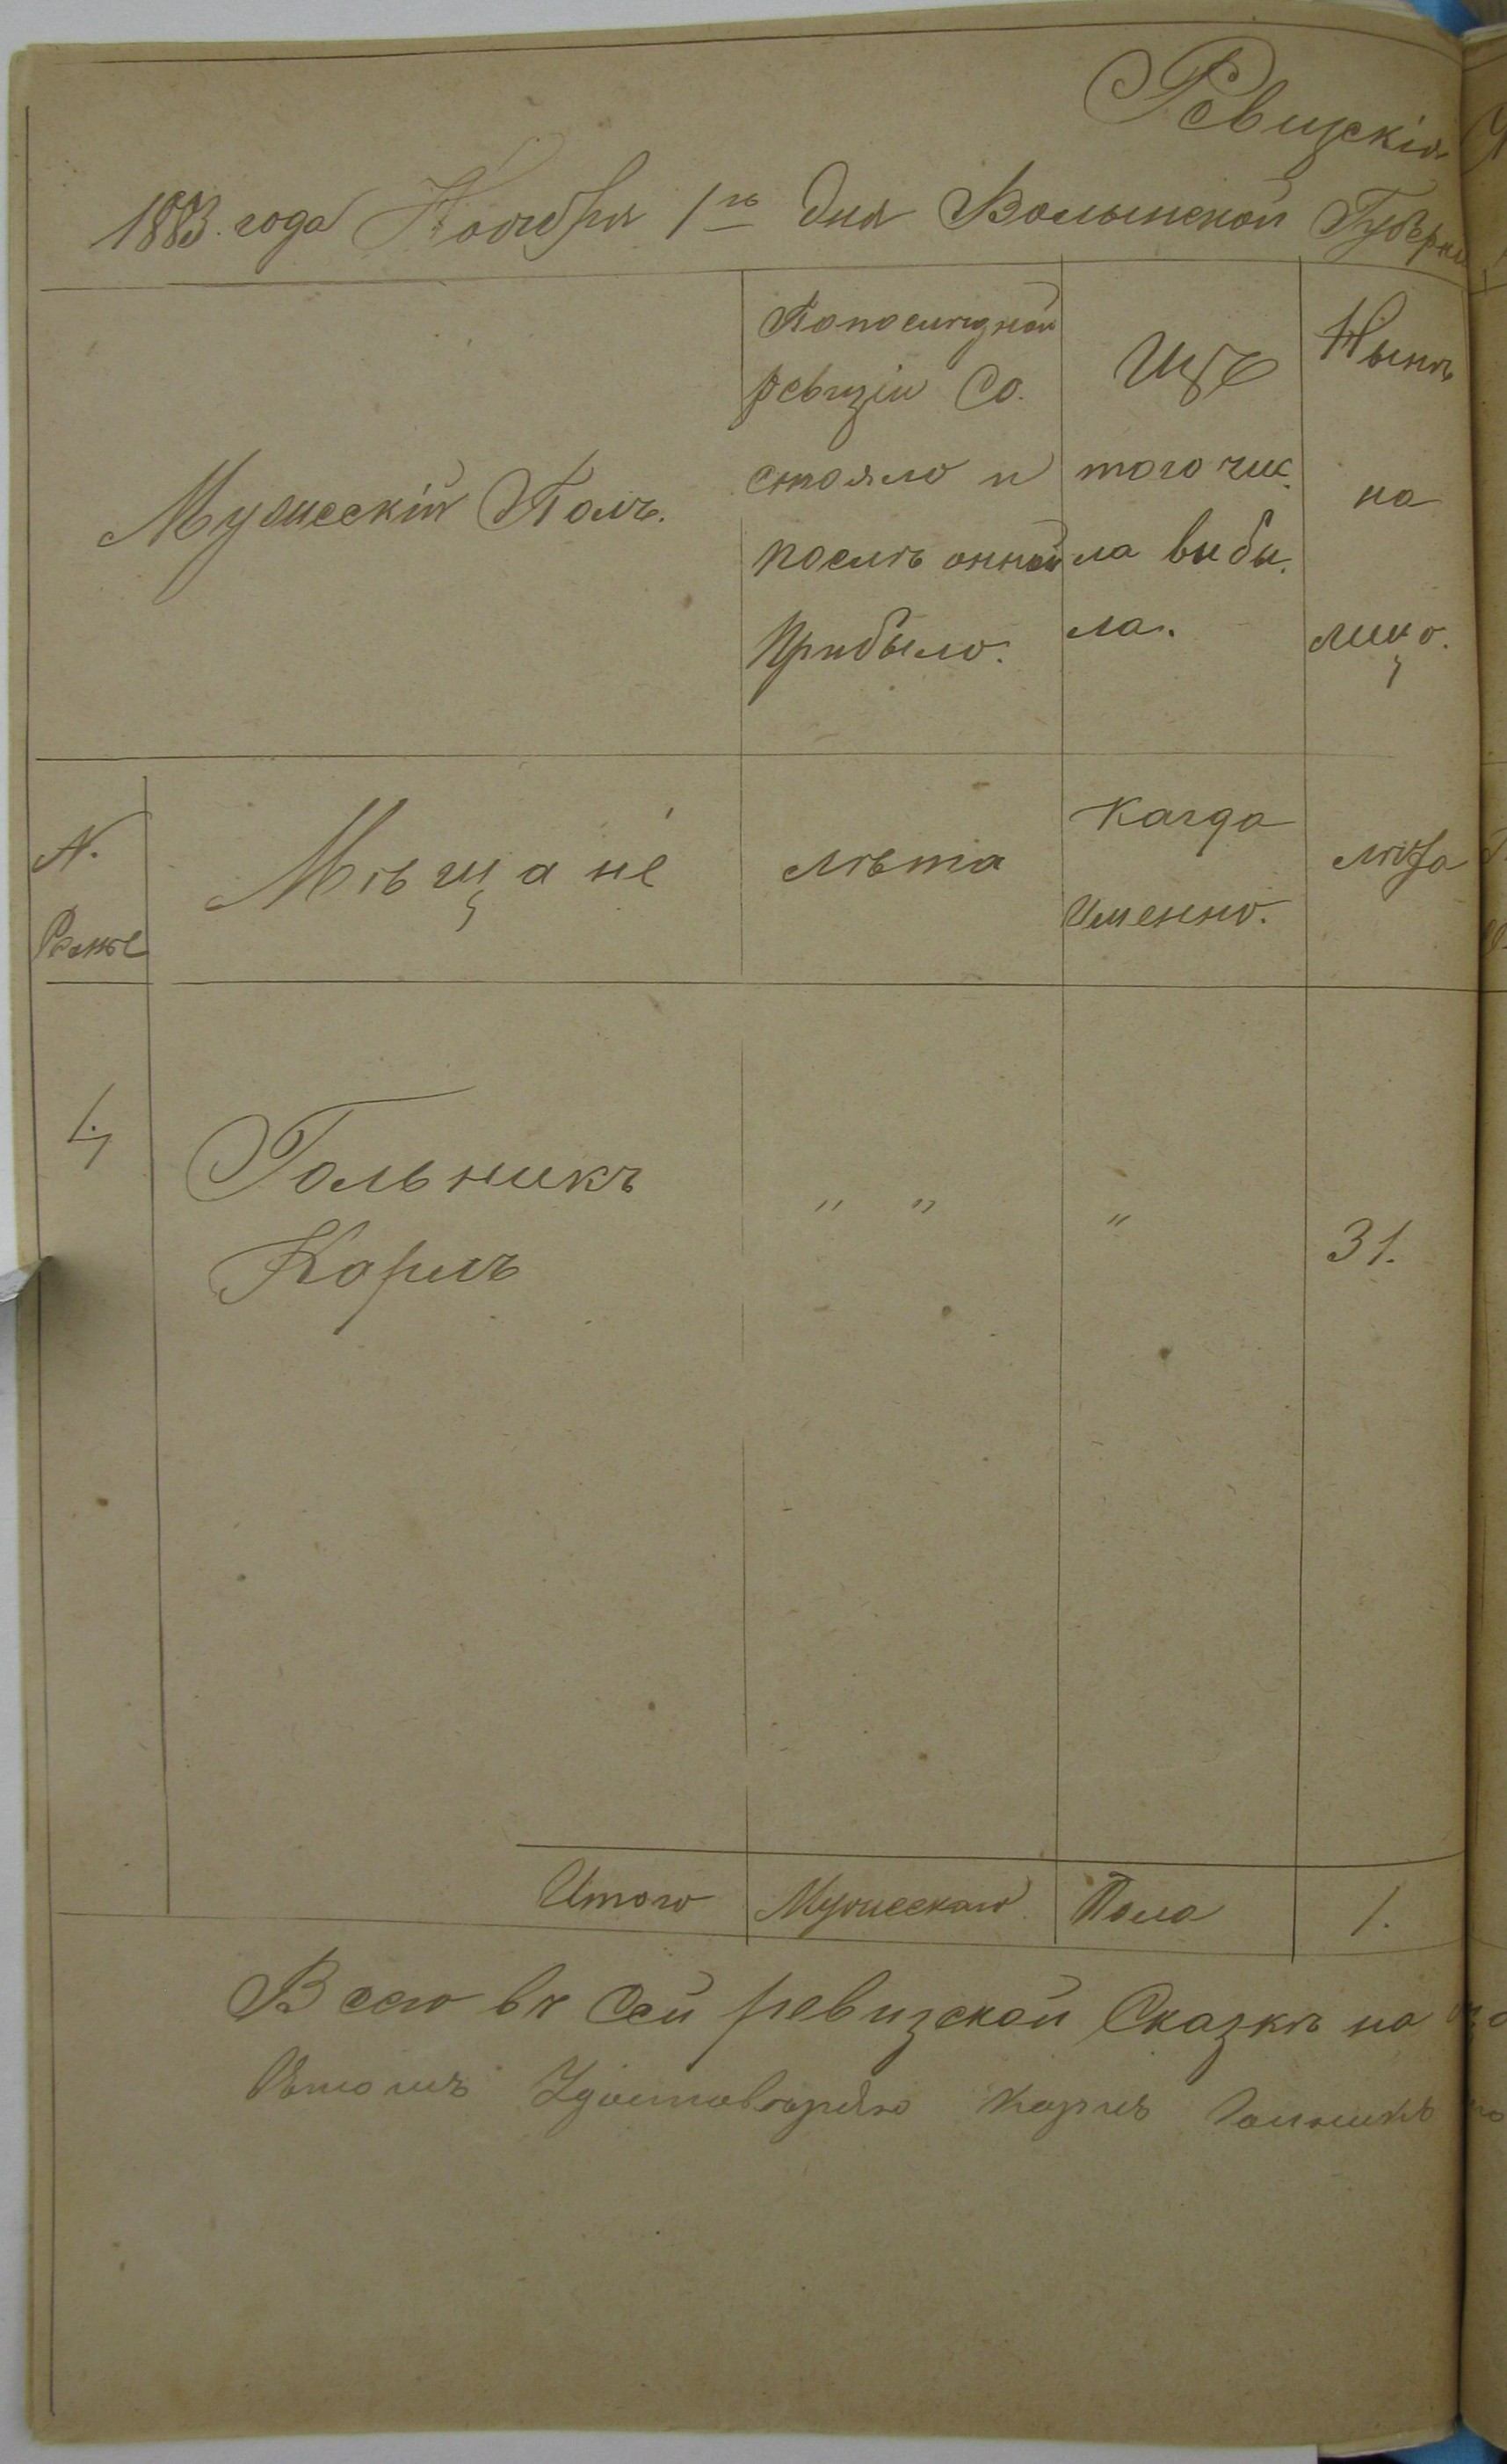 Ревизскія
1883. года Ноября 1го дня Волынской Губерніи
Мужескій Полъ.
По последней
ревизіи Со-
стояло и
послѣ оной
Прибыло.
Изъ
того чис-
ла выбы-
ла.
Нынѣ
на
лицо.
N.
Мѣщане
лѣта
Когда
Именно.
лѣта
1.
Гольникъ
Карлъ
" "
"
31.
Итого Мужескаго Пола 1.
Всего въ Сей ревизской Сказкѣ на
Вѣтомъ Удостовѣряю Карлъ Гольникъ